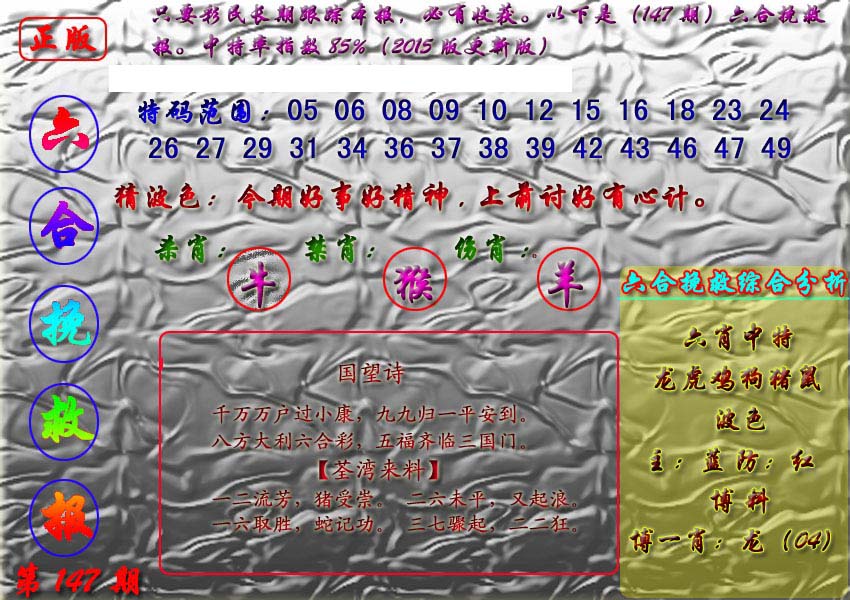 正版
只要彩民长期跟踪本报，必有收获。以下是（147期）六合挽救
报。中特率指数85%（2015版更新版）
六合挽救报
第147期
特码范围：05 06 08 09 10 12 15 16 18 23 24
26 27 29 31 34 36 37 38 39 42 43 46 47 49
猜波色：今期好事好精神，上前讨好有心计。
杀肖：牛 禁肖：猴 伤肖：羊
国望诗
千万万户过小康，九九归一平安到。
八方大利六合彩，五福齐临三国门。
【荃湾来料】
一二流芳，猪受崇。 二六未平，又起浪。
一六取胜，蛇记功。 三七骤起，二二狂。
六合挽救综合分析
六肖中特
龙虎鸡狗猪鼠
波色
主：蓝防：红
博料
博一肖：龙（04）